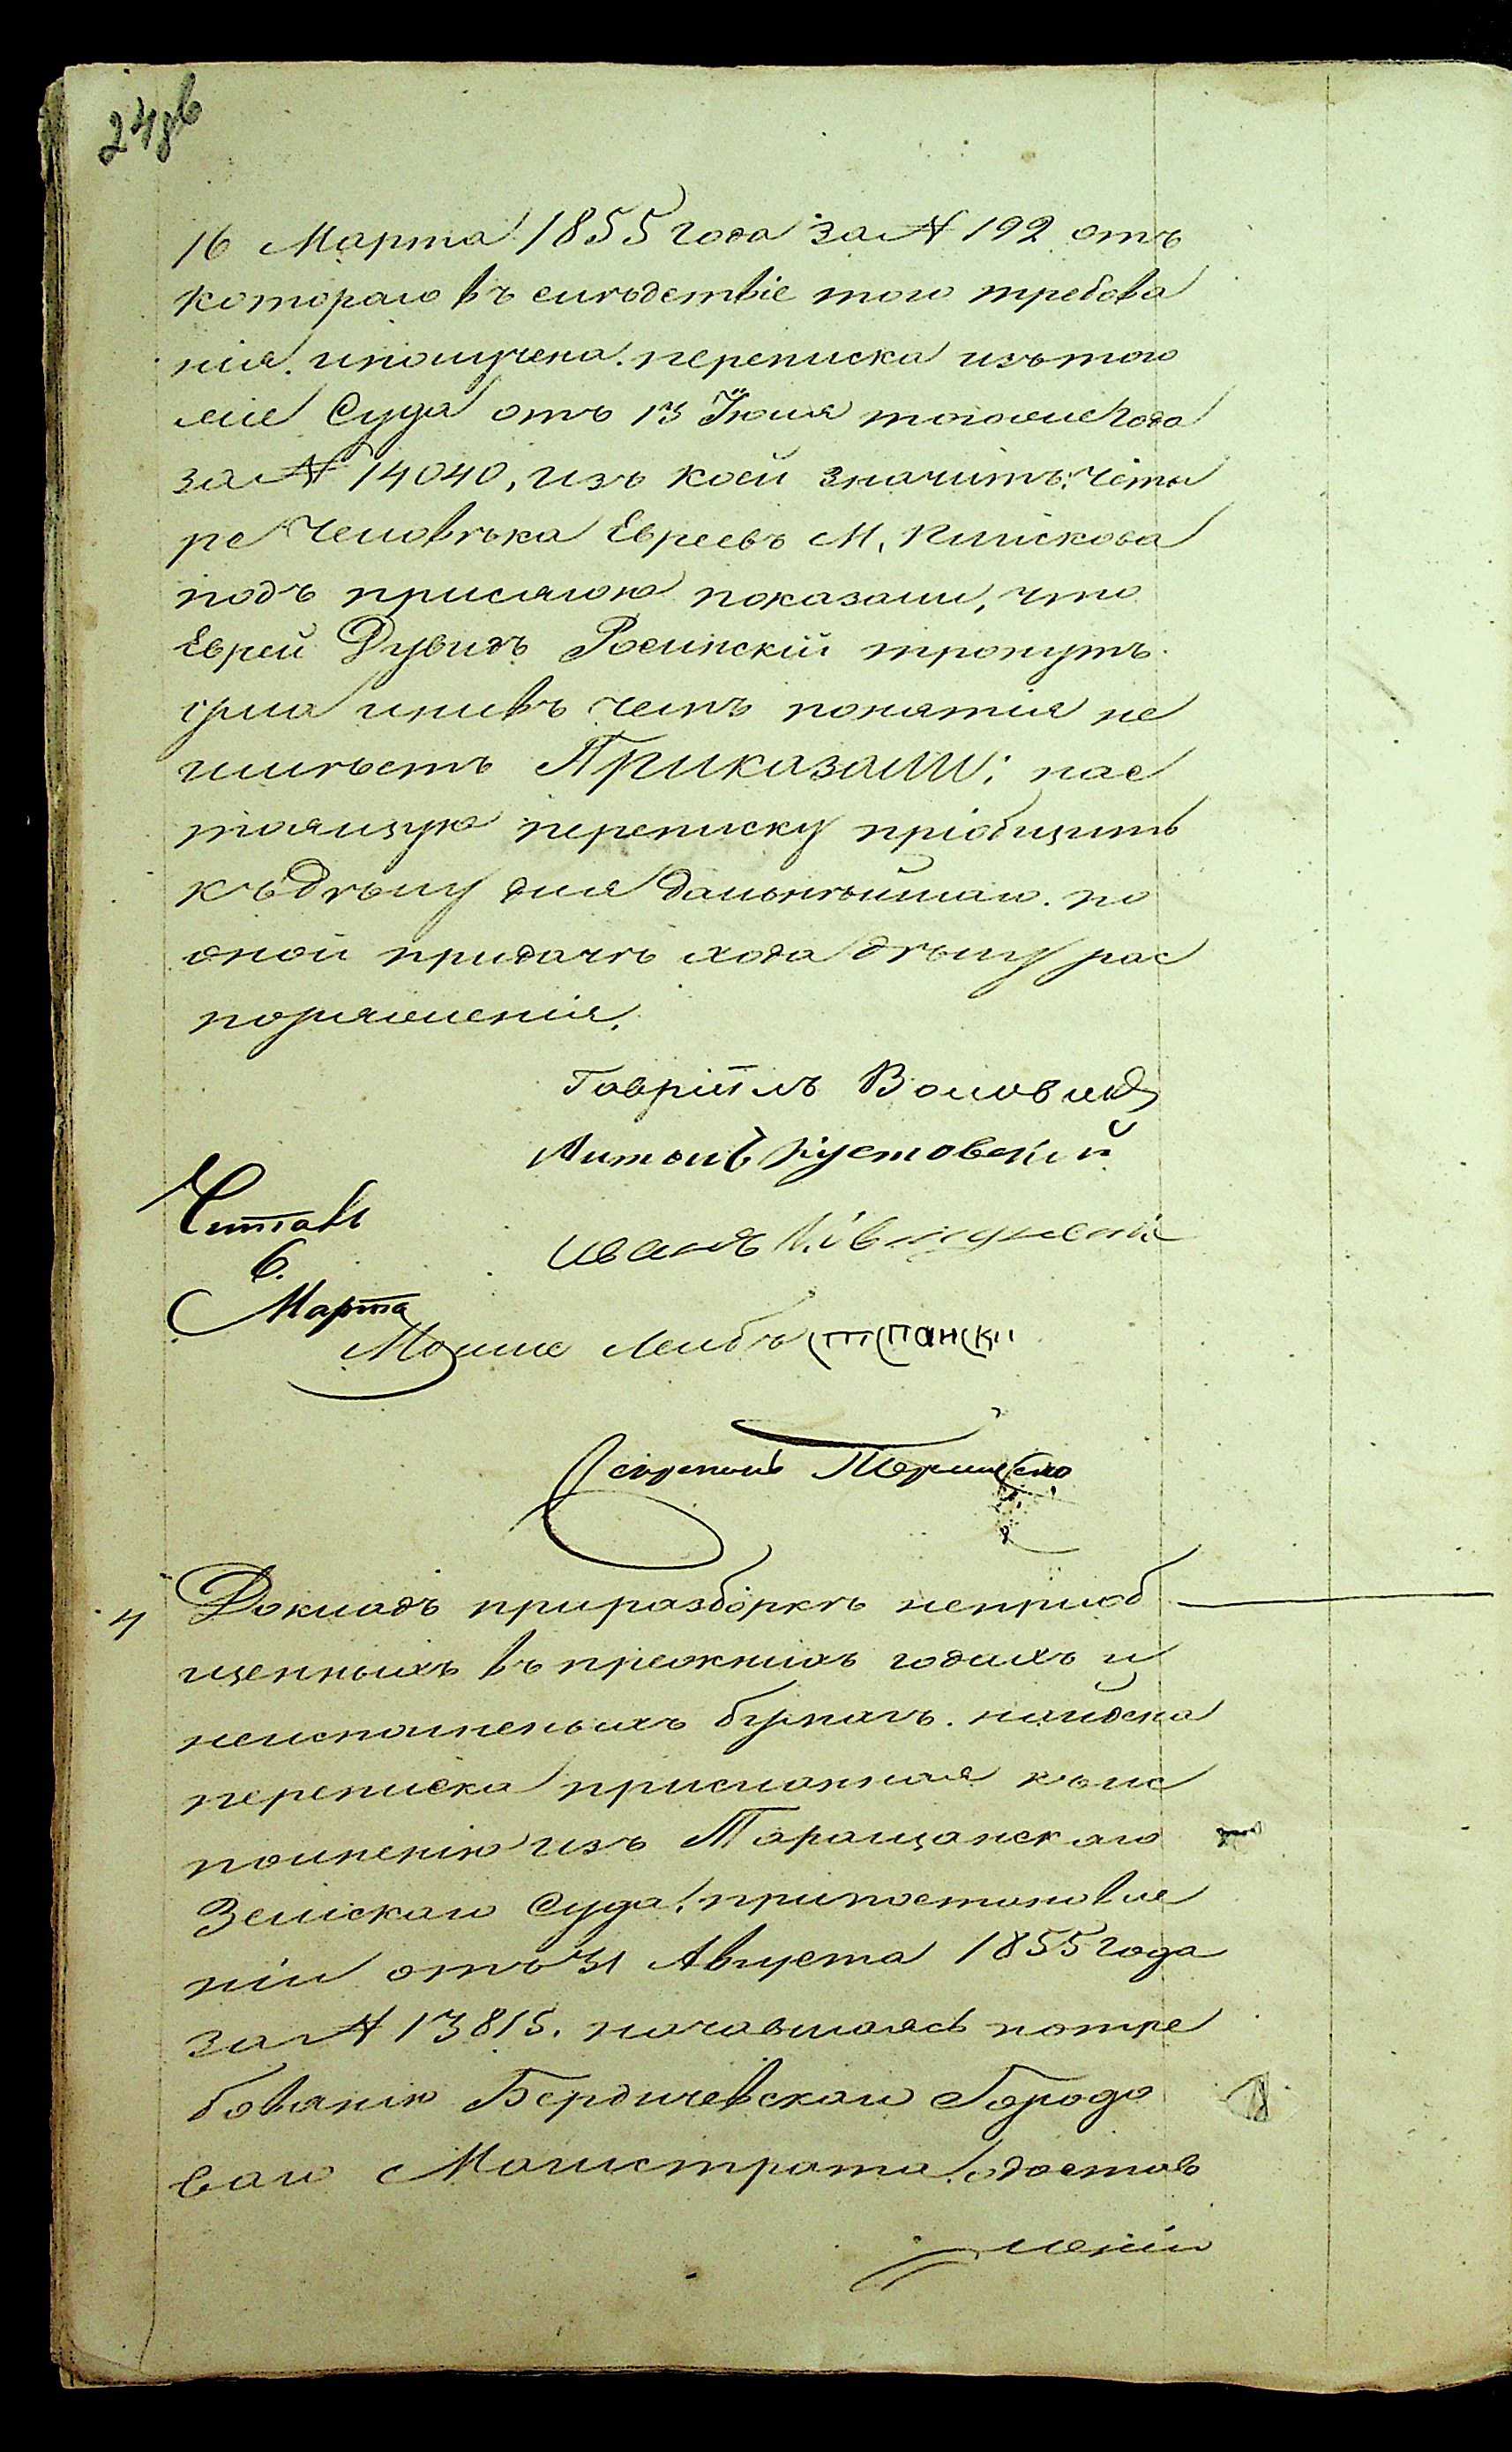 16 Марта 1855 года за № 192 отъ
котораго въ слѣдствіе того требова
нія. иполучена. переписка изътого
же Суда отъ 13 Іюля тогоже года
за № 14040, изъ коей значитъ: четы
ре человѣка Евреевъ М.
подъ присягою показали, что
Еврей Дувидъ Росинскій
ума инивъ чемъ понятія не
имѣетъ Приказали: нас
тоящую переписку пріобщить
къдѣлу для дальнѣйшаго. по
оной придачѣ хода дѣлу рас
поряженія.
Гавріилъ
Антонъ Кустовскій
Читалъ
Иванъ
6.
Марта
Мошке Лейбъ
Секретарь
4 Докладъ приразборкѣ непріоб
щенныхъ въ прежнихъ годахъ и
неисполненыхъ бумагъ. найдена
переписка присланная къис
полненію изъ Таращанскаго
Земскаго Суда. припостановле
ніи отъ 31 Августа 1855 года
за № 13815. начавшаясь потре
бованію Бердичевскаго Городо
ваго Магистрата. одостав
леніи